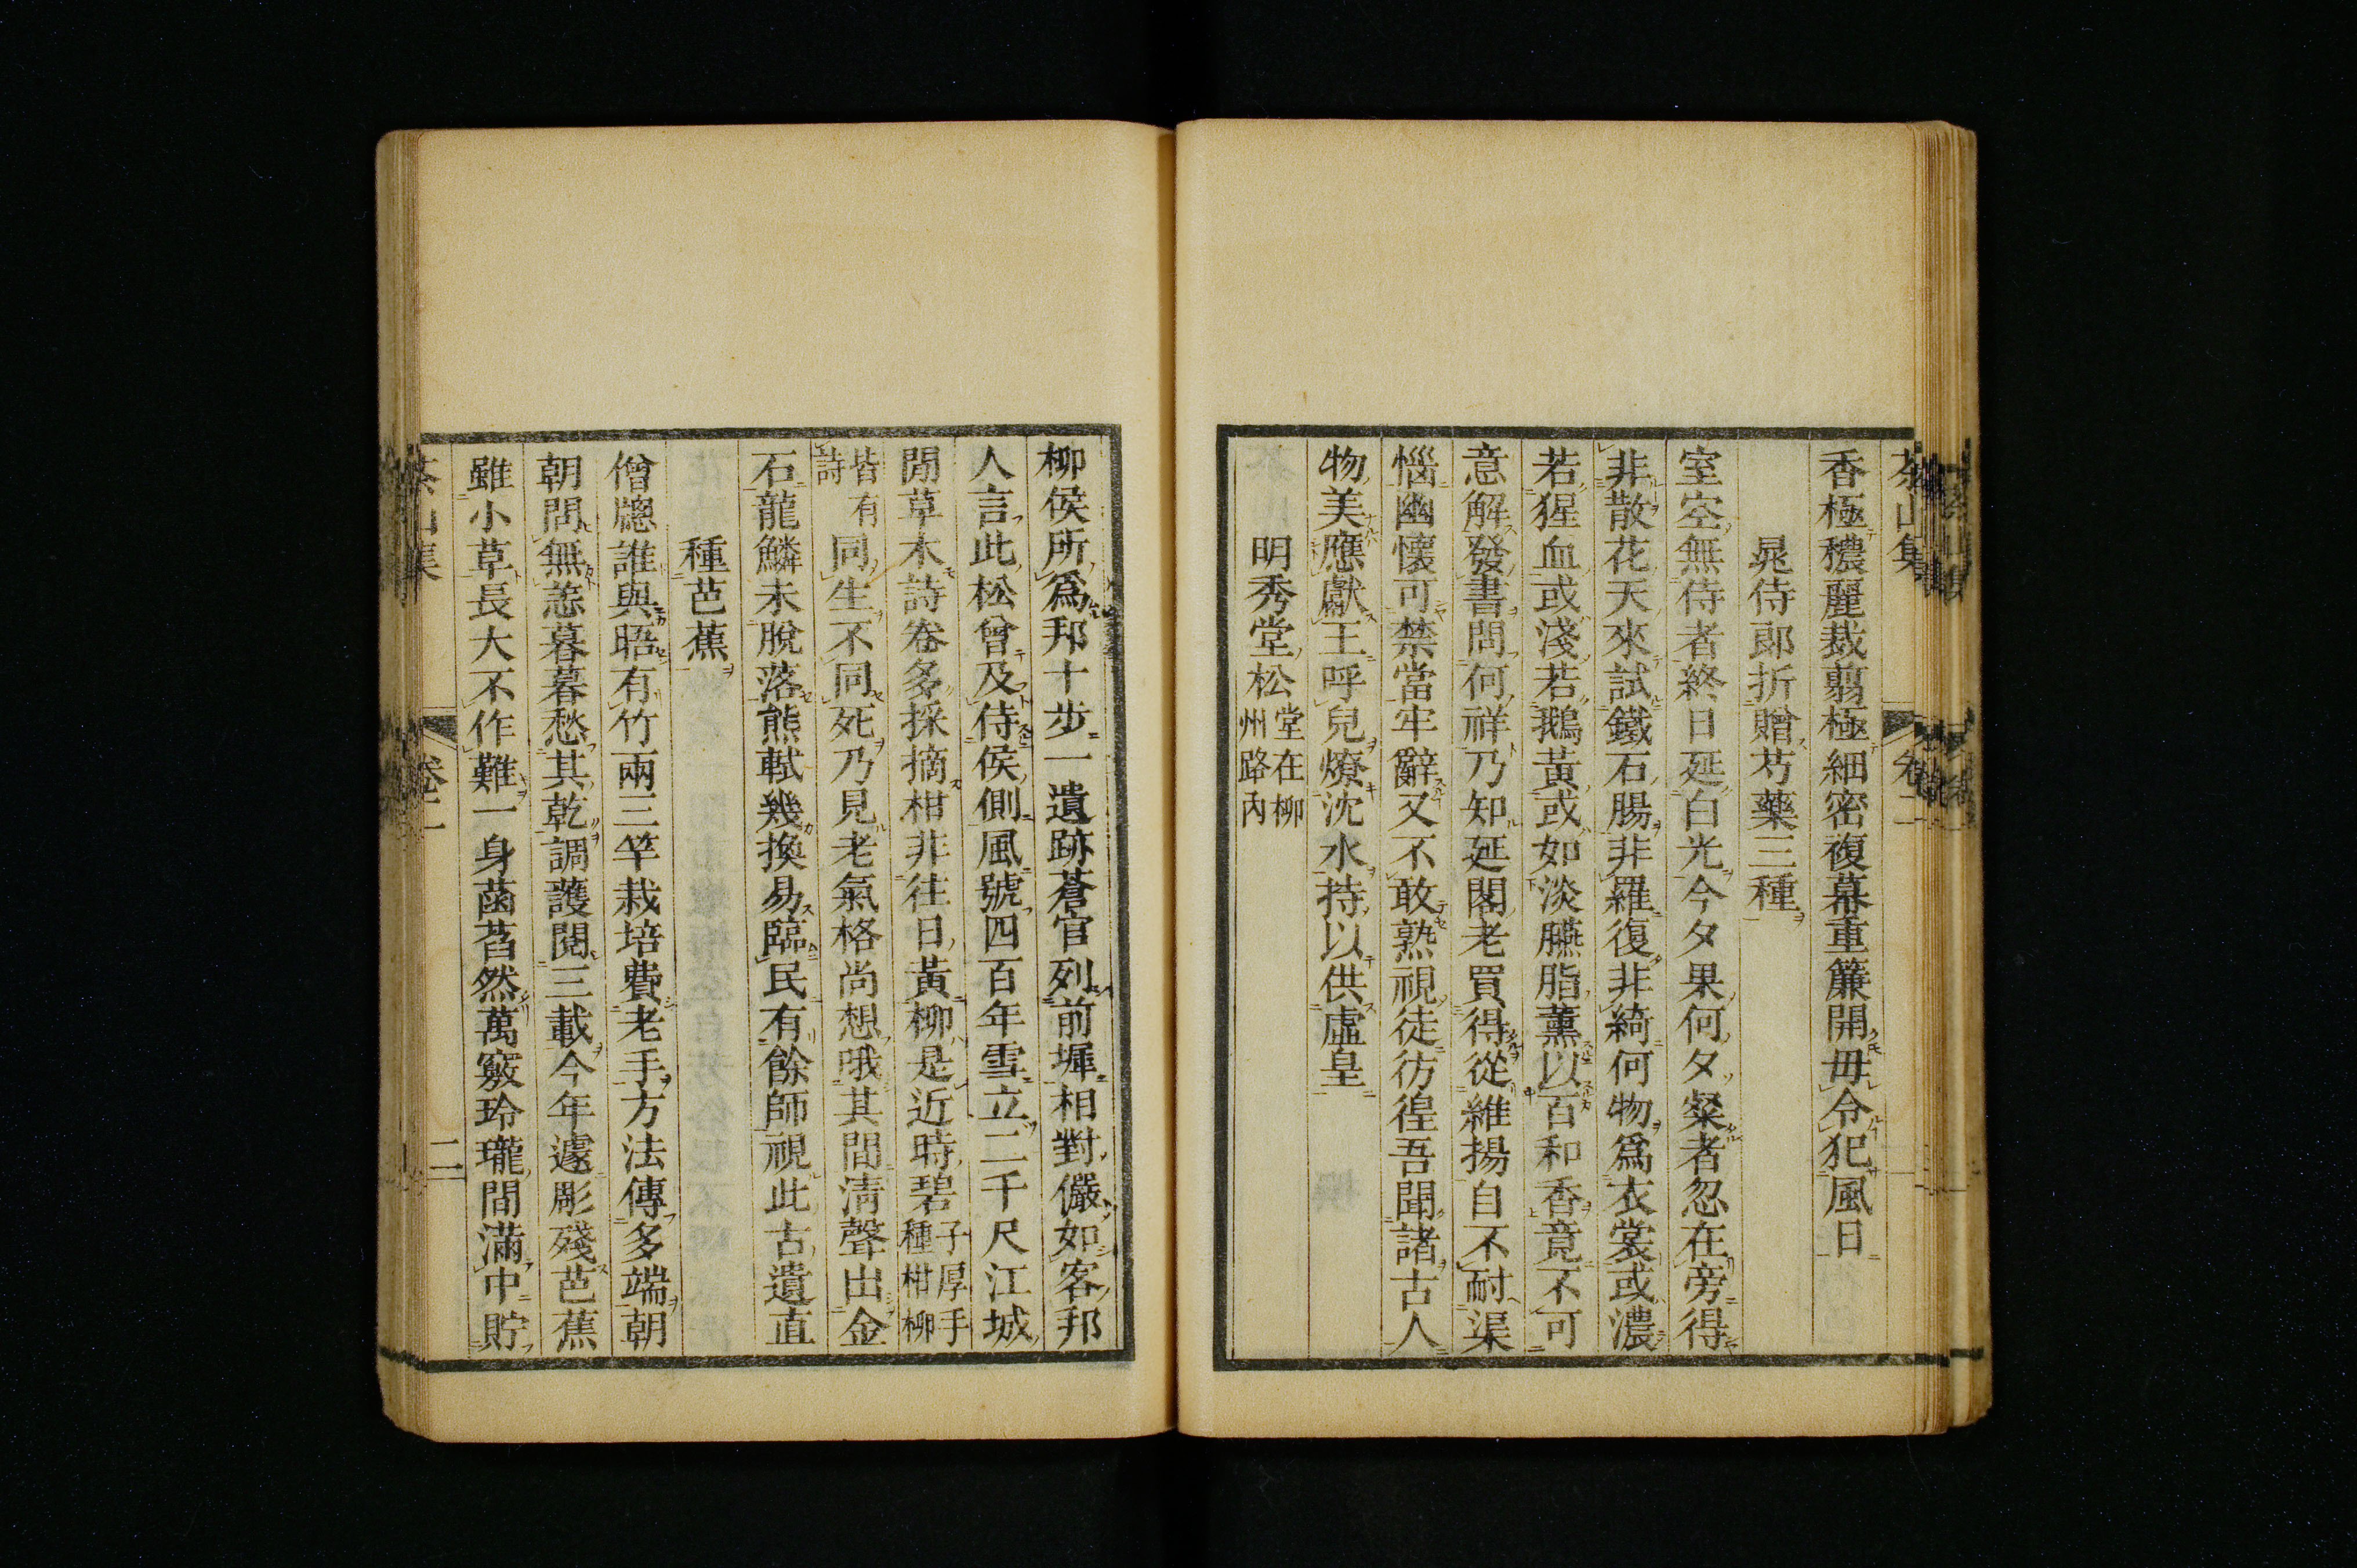 茶山集 卷二
香極穠麗裁翦極細密複幕重簾開毋令犯風日
晁侍郎折贈芍藥三種
室空無侍者終日延白光今夕果何夕粲者忽在旁得
非散花天來試鐵石腸非羅復非綺何物爲衣裳或濃
若猩血或淺若鵝黃或如淡臙脂薰以百和香竟不可
意解發書問何祥乃知延閣老買得從維揚自不耐渠
惱幽懷可禁當牢辭又不敢熟視徒彷徨吾聞諸古人
物美應獻王呼兒燎沈水持以供虛皇
明秀堂松堂在柳州路內
柳侯所爲邦十步一遺跡蒼官列前墀相對儼如客邦
人言此松曾及侍侯側風號四百年雪立二千尺江城
閒草木詩卷多採摘柑非往日黃柳是近時碧子厚手種柑柳
皆有詩同生不同死乃見老氣格尚想哦其間淸聲出金
石龍鱗未脫落熊軾幾換易臨民有餘師視此古遺直
種芭蕉
僧牕誰與晤有竹兩三竿栽培費老手方法傳多端朝
朝問無恙暮暮愁其乾調護閱三載今年遽彫殘芭蕉
雖小草長大不作難一身菡萏然萬竅玲瓏間滿中貯
茶山集 卷二 二